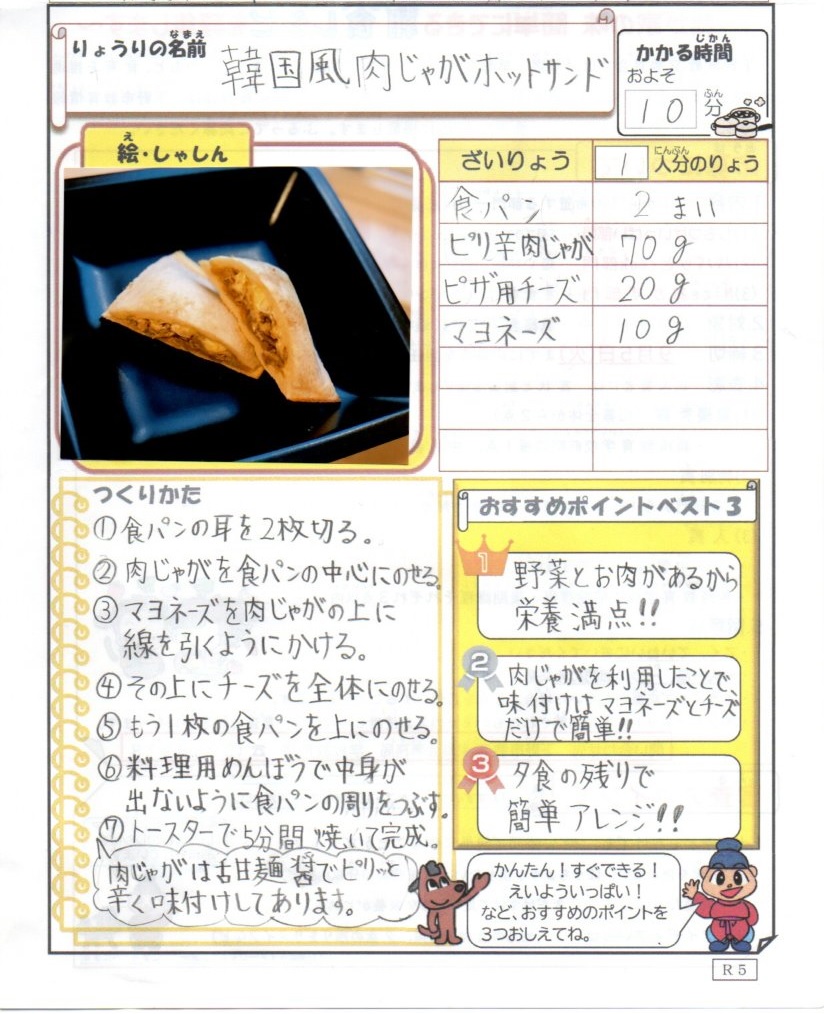 りょうりの名前
なまえ
韓国風肉じゃがホットサンド
かかる時間
じかん
およそ
10分
ふん
絵・しゃしん
え
ざいりょう 1人分のりょう
にんぶん
食パン 2まい
ピリ辛肉じゃが 70g
ピザ用チーズ 20g
マヨネーズ 10g
つくりかた
①食パンの耳を2枚切る。
②肉じゃがを食パンの中心にのせる。
③マヨネーズを肉じゃがの上に
線を引くようにかける。
④その上にチーズを全体にのせる。
⑤もう1枚の食パンを上にのせる。
⑥料理用めんぼうで中身が
出ないように食パンの周りをつぶす。
⑦トースターで5分間焼いて完成。
肉じゃがは舌甘麺醤でピリッと
辛く味付けしてあります。
おすすめポイントベスト3
1
野菜とお肉があるから
栄養満点!!
2
肉じゃがを利用したことで、
味付けはマヨネーズとチーズ
だけで簡単!!
3
夕食の残りで
簡単アレンジ!!
かんたん!すぐできる!
えいよういっぱい!
など、おすすめのポイントを
3つおしえてね。
R5